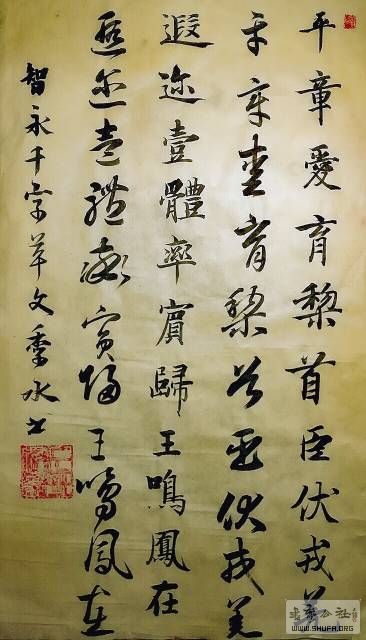 平章愛育黎首臣伏戎羌
平章愛育黎首臣伏戎羌
遐迩壹體率賓歸王鳴鳳在
遐迩壹體率賓歸王鳴鳳在
智永千字草文季水书
書法公社
WWW.SHUFA.ORG